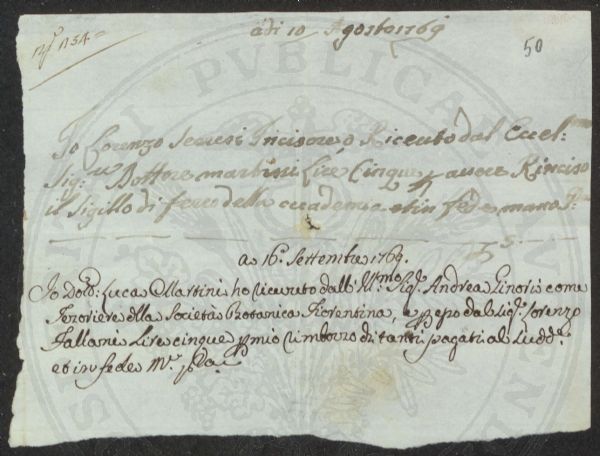 adi 10 Agosto 1769
50
Io Lorenzo Incisore o Riceuto dal Eccel:
Sig:re Dottore martini Lire Cinque p avere Rinciso
il Sigillo di fero della ccademia et in fede mano Pa
£ 5:
a 16. Settembre 1769.
Io Dott. Luca Martini ho ricevuto dall' Ill:mo Sig. Andrea Ginori come
Tezoriere della Società Botanica Fiorentina, e p esso dal Sig. Lorenzo
Lire cinque p mio rimborzo di tanti pagati al Sudd.
et in fede M. pa